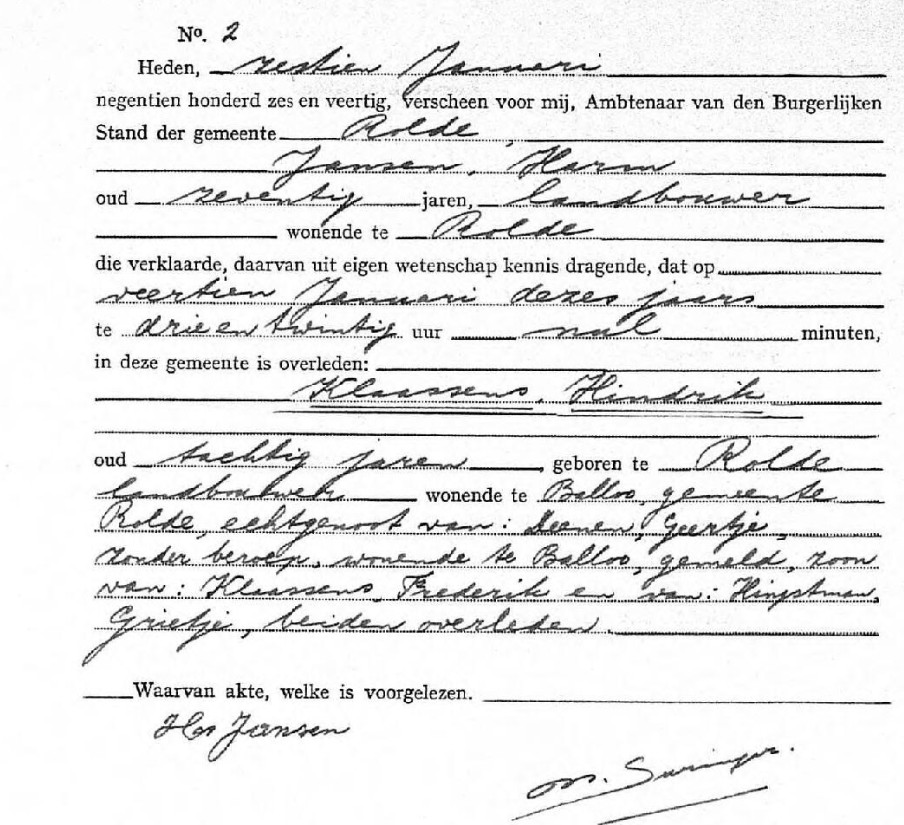 No. 2
Heden, zestien Januari
negentien honderd zes en veertig, verscheen voor mij, Ambtenaar van den Burgerlijken
Stand der gemeente Rolde,
Jansen, Harm
oud zeventig jaren, landbouwer
wonende te Rolde
die verklaarde, daarvan uit eigen wetenschap kennis dragende, dat op
veertien Januari dezes jaars
te drie en twintig uur nul minuten,
in deze gemeente is overleden:
Klaassens, Hindrik
oud tachtig jaren, geboren te Rolde
landbouwer wonende te Balloo, gemeente
Rolde, echtgenoot van: Deenen, Geertje,
zonder beroep, wonende te Balloo, gemeld, zoon
van: Klaassens, Frederik en van: Hingstman,
Grietje, beiden overleden.
Waarvan akte, welke is voorgelezen.
Jansen